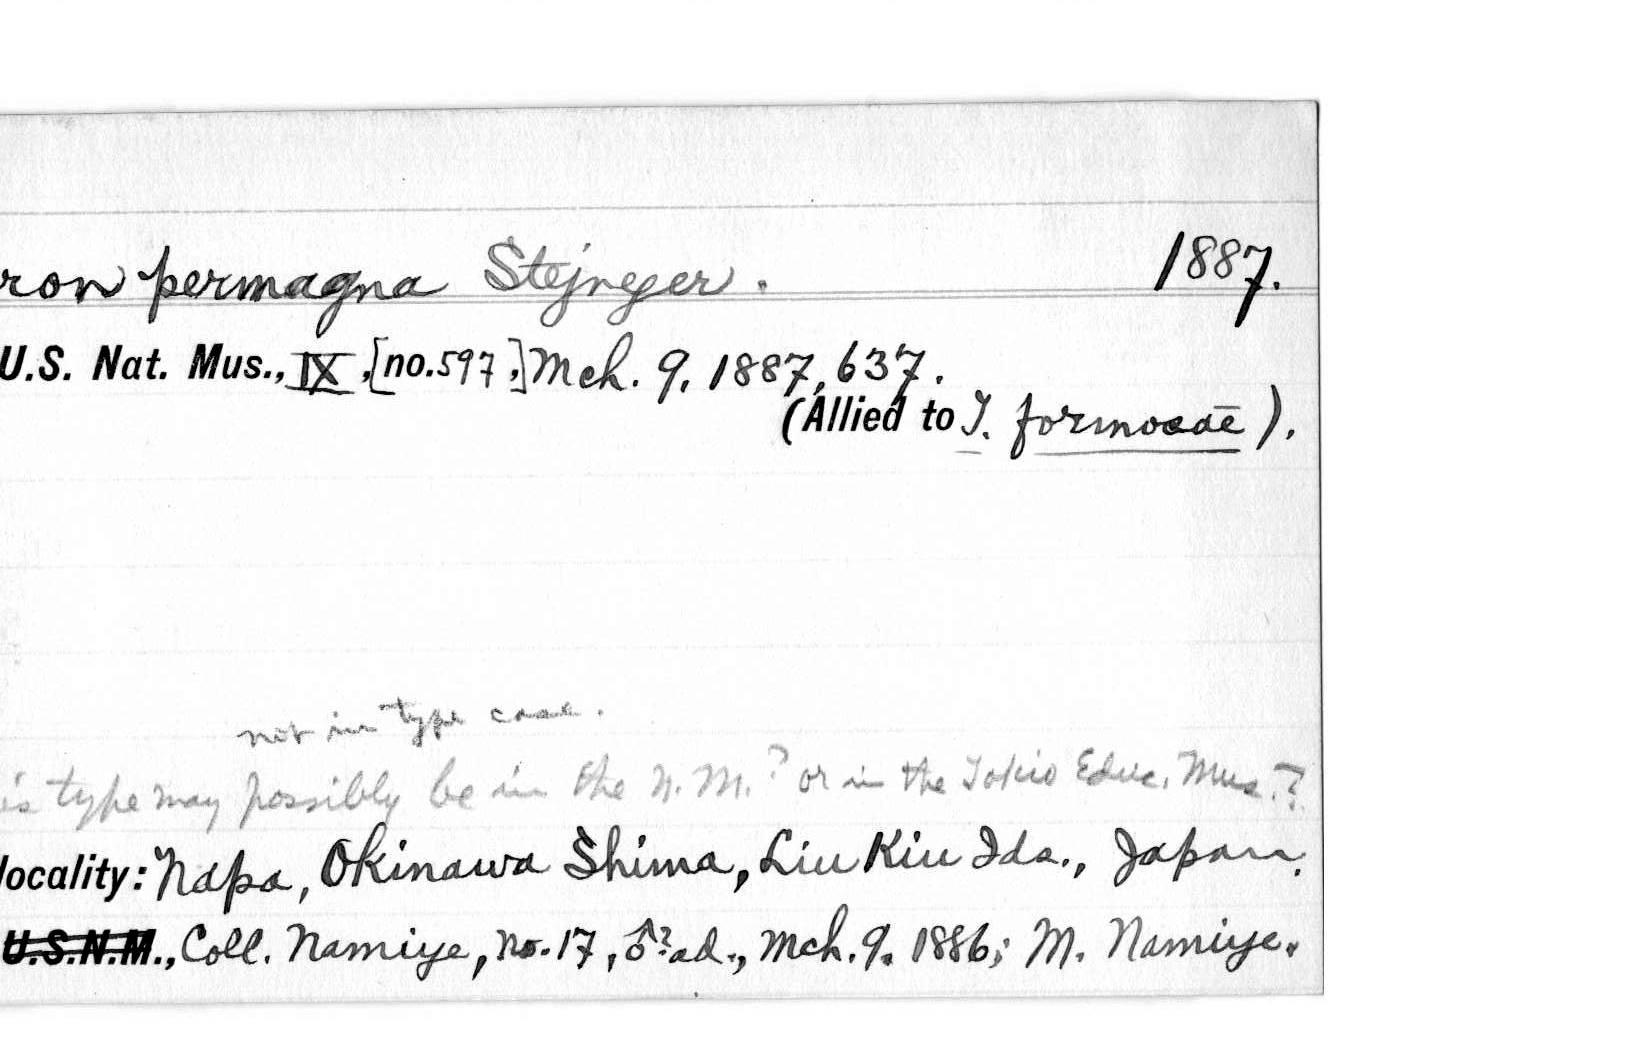 ron permagna Stejneger. 1887.
U.S. Nat. Mus., IX, [no. 597,] Mch. 9, 1887, 637.
(Allied to T. formosae).
not in type case.
is type may possibly be in the N. M.? or in the Tokio Educ. Mus.?
locality: Napa, Okinawa Shima, Liu Kiu Ids., Japan.
U.S.N.M., Coll. Namiye, No. 17, ♂? ad., Mch. 9. 1886; M. Namiye.